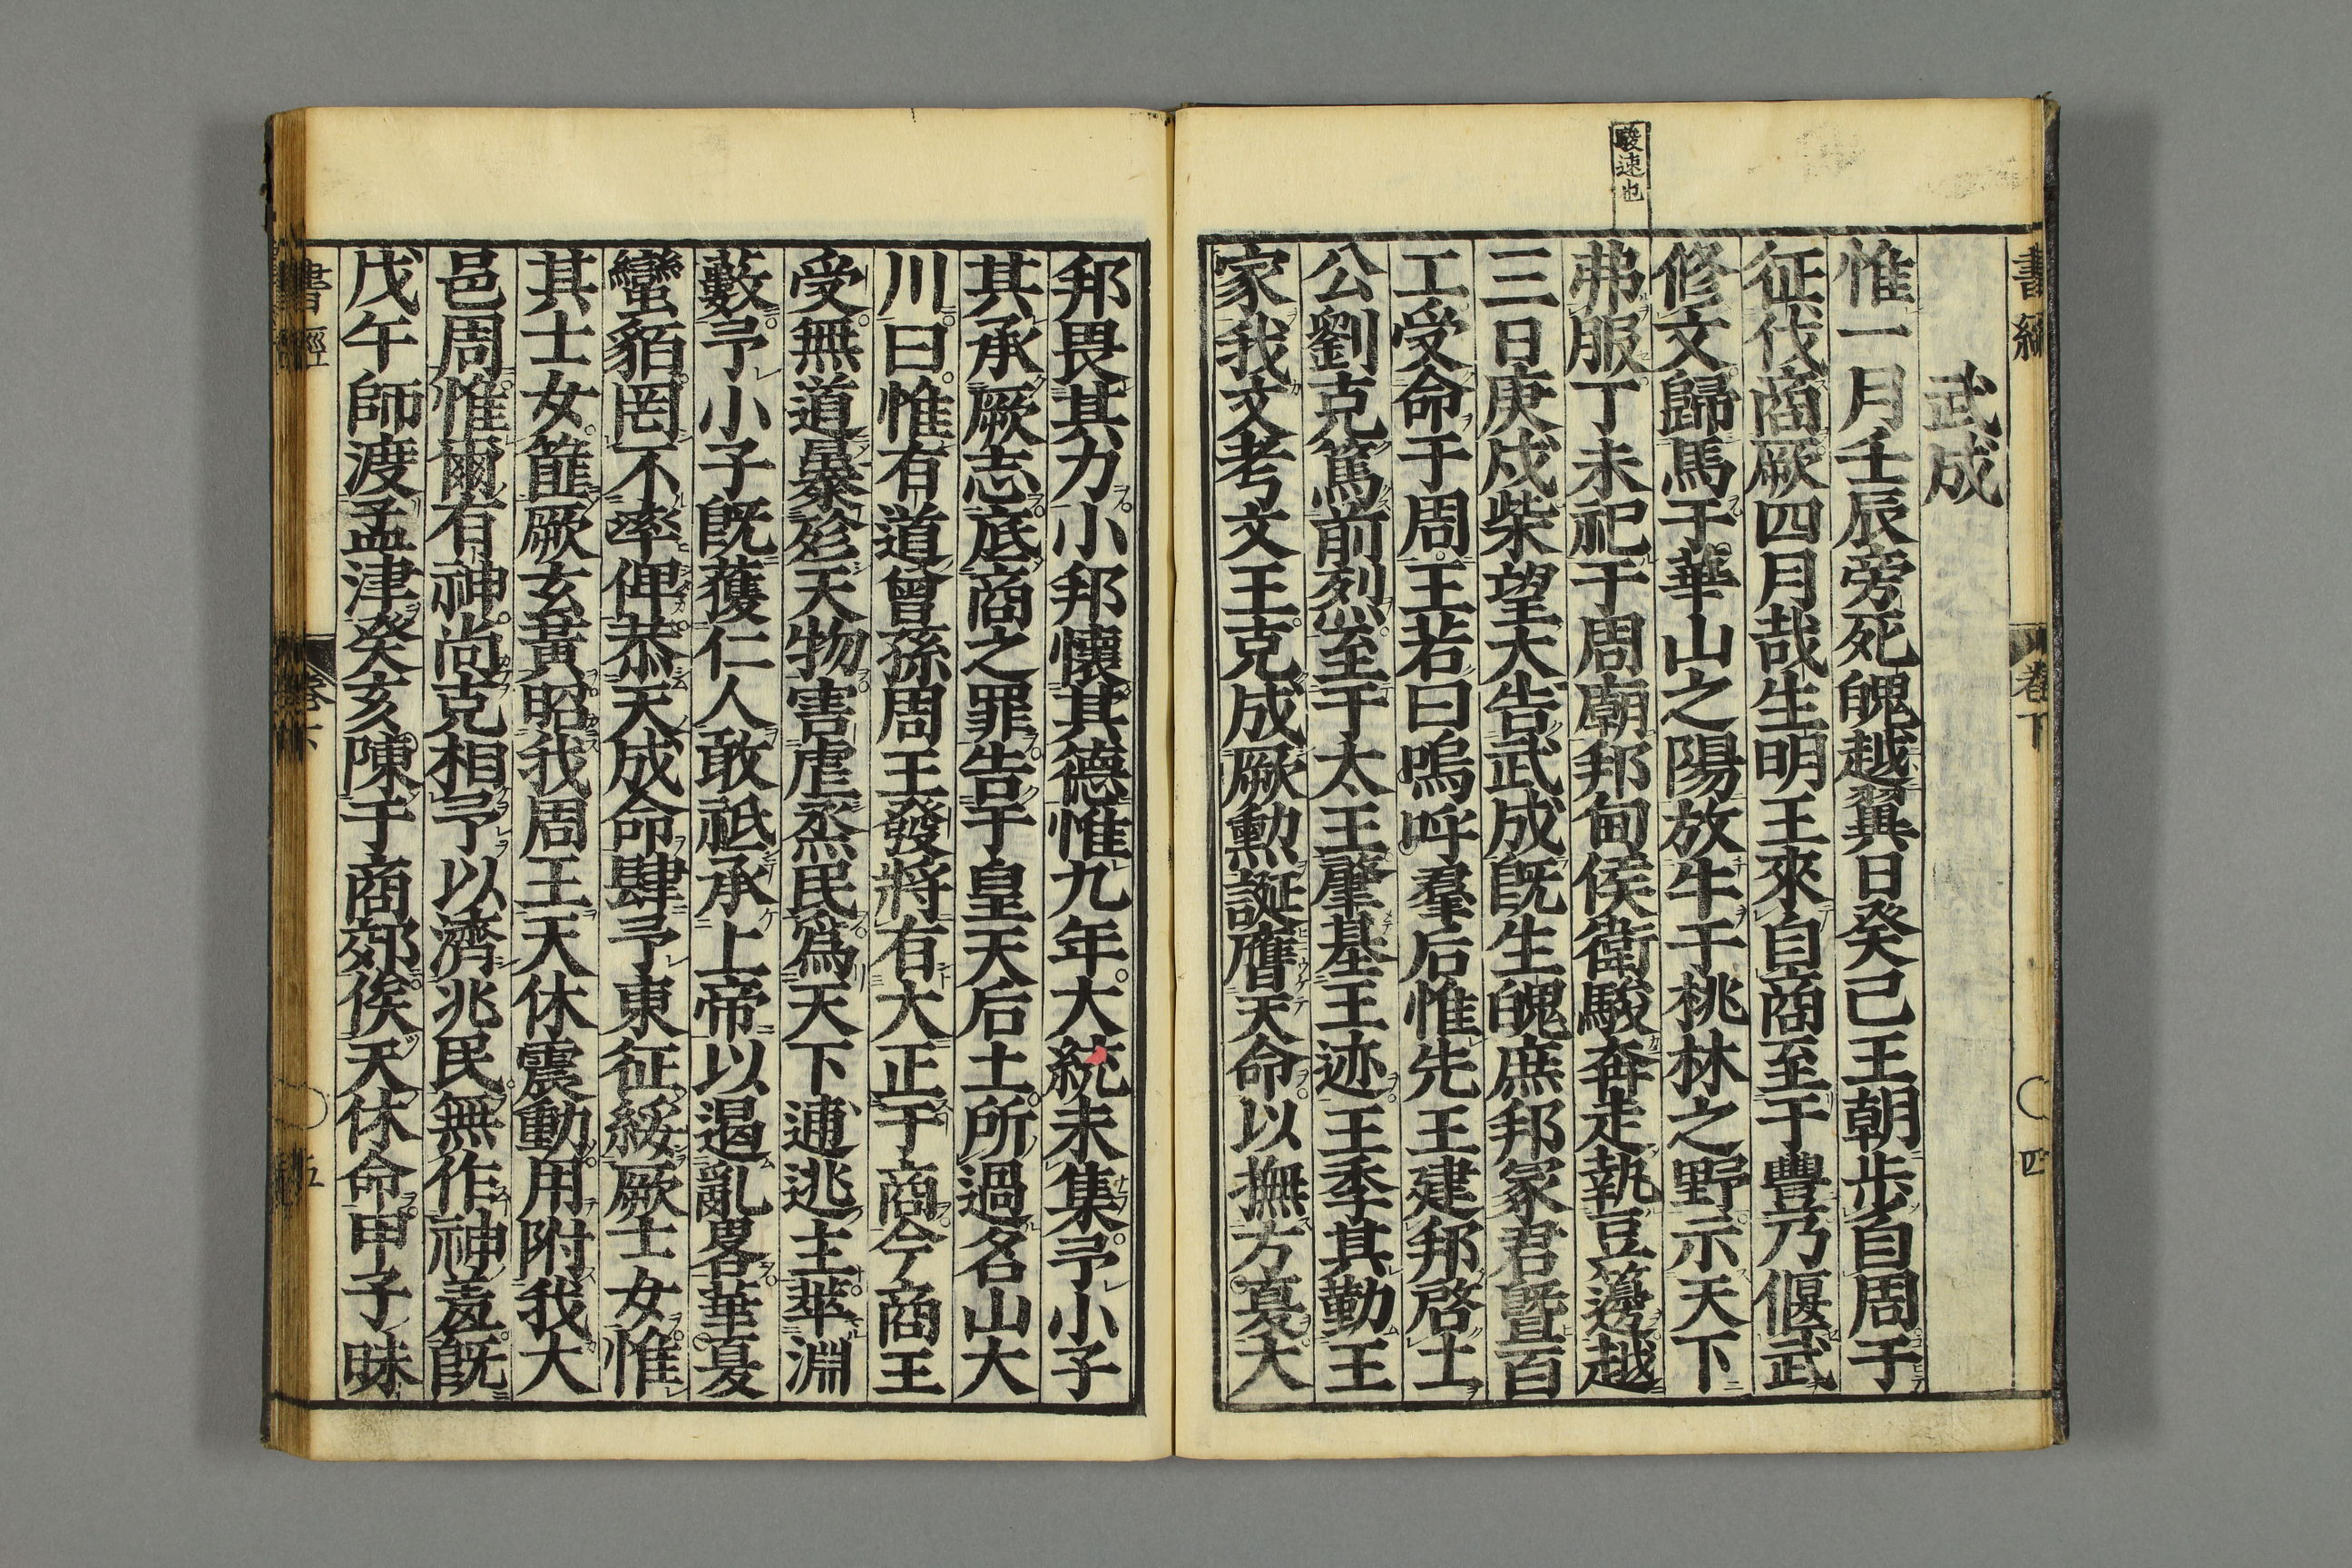 駿速也
武成
惟一月壬辰旁死魄越翼日癸巳王朝步自周于
征伐商厥四月哉生明王來自商至于豐乃偃武
修文歸馬于華山之陽放牛于桃林之野示天下
弗服丁未祀于周廟邦甸侯衛駿奔走執豆籩越
三日庚戌柴望大告武成既生魄庶邦冢君暨百
工受命于周王若曰嗚呼羣后惟先王建邦啓土
公劉克篤前烈至于太王肇基王迹王季其勤王
家我文考文王克成厥勳誕膺天命以撫方夏大
書經
卷下
四
邦畏其力小邦懷其德惟九年大統未集予小子
其承厥志底商之罪告于皇天后土所過名山大
川曰惟有道曾孫周王發將有大正于商今商王
受無道暴殄天物害虐烝民爲天下逋逃主萃淵
藪予小子既獲仁人敢祗承上帝以遏亂畧華夏
蠻貊罔不率俾恭天成命肆予東征綏厥士女惟
其士女篚厥玄黃昭我周王天休震動用附我大
邑周惟爾有神尚克相予以濟兆民無作神羞既
戊午師渡孟津癸亥陳于商郊俟天休命甲子昧
書經
卷下
五